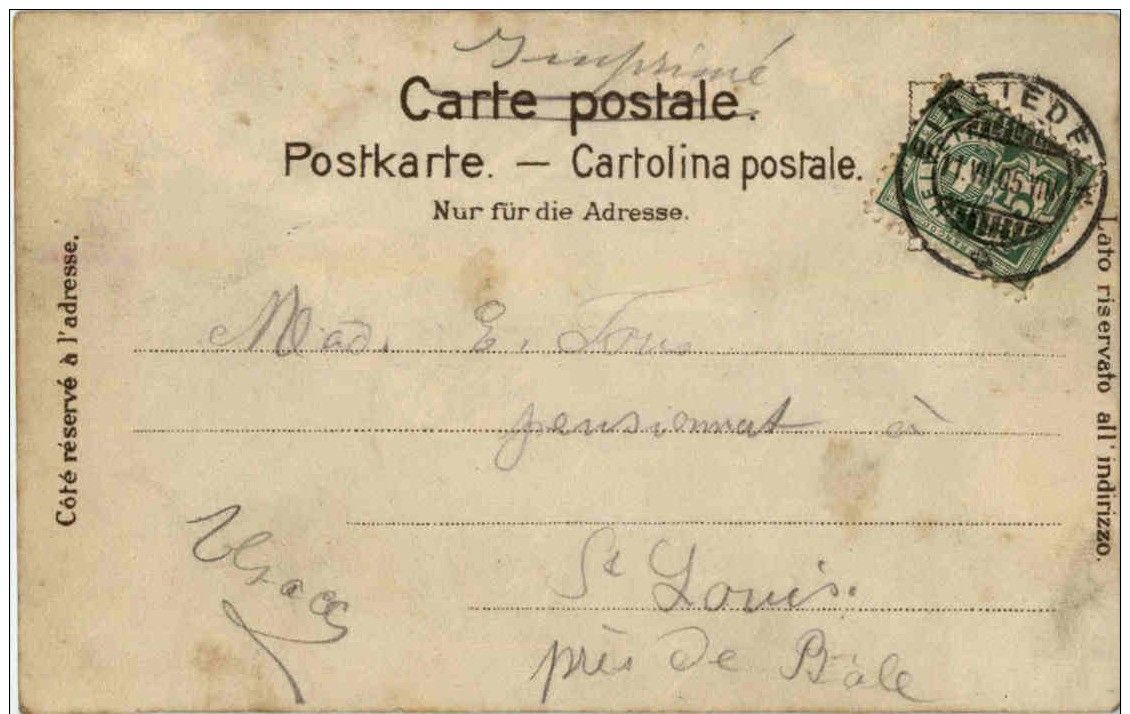 Imprimé
Carte postale.
Postkarte. — Cartolina postale.
Nur für die Adresse.
Côté réservé à l'adresse.
Lato riservato all' indirizzo.
Mad. E.
pensionnat à
St Louis.
près de Bâle
Alsace